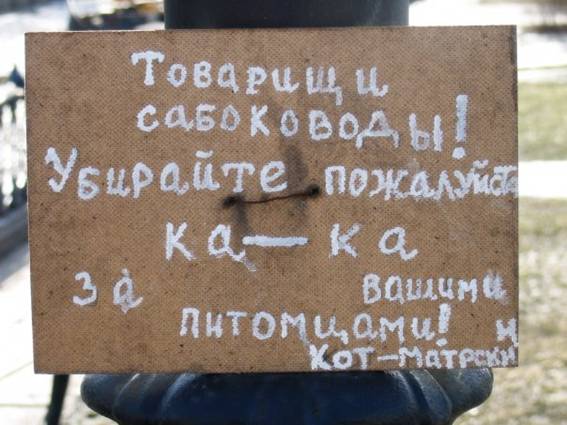 Товарищи
сабоководы!
Убирайте пожалуйста
ка-ка
за вашими
питомцами! и
Кот-матрски